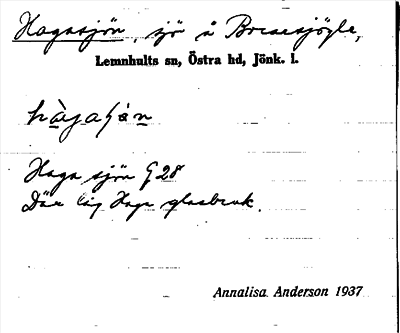 Hagasjön, sjö å
Lemnhults sn, Östra hd, Jönk. l.
Haga sjön G 28
Där låg Haga glasbruk.
Annalisa Anderson 1937